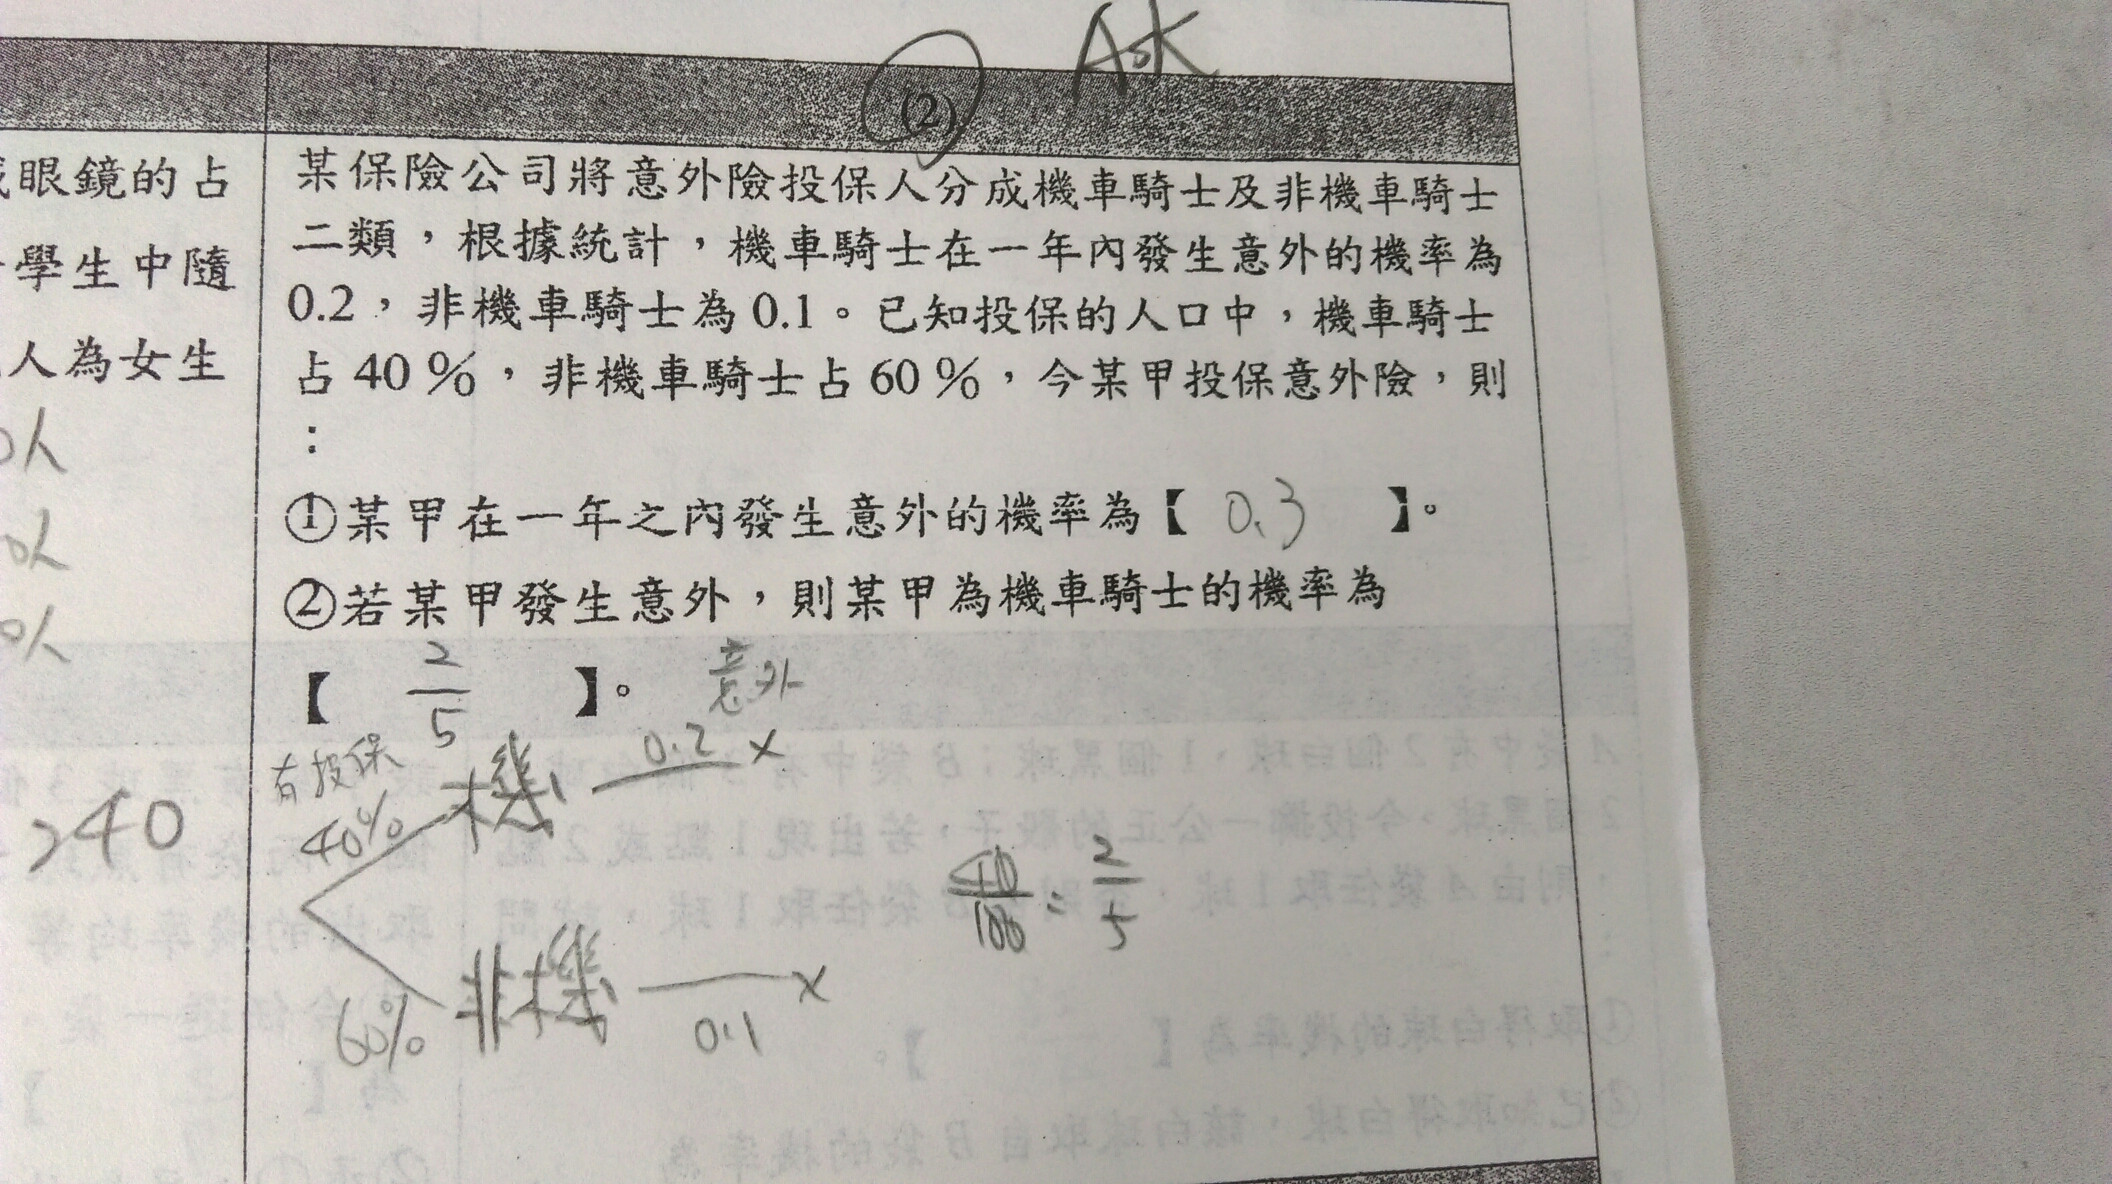 Ask
(2)
眼鏡的占
學生中隨
人為女生
0人
0人
0人
240
某保險公司將意外險投保人分成機車騎士及非機車騎士
二類，根據統計，機車騎士在一年內發生意外的機率為
0.2，非機車騎士為0.1。已知投保的人口中，機車騎士
占40%，非機車騎士占60%，今某甲投保意外險，則
：
①某甲在一年之內發生意外的機率為【 0.3 】。
②若某甲發生意外，則某甲為機車騎士的機率為
【 2/5 】。 意外
有投保
40% 機 0.2 ×
40/100 = 2/5
60% 非機 0.1 ×